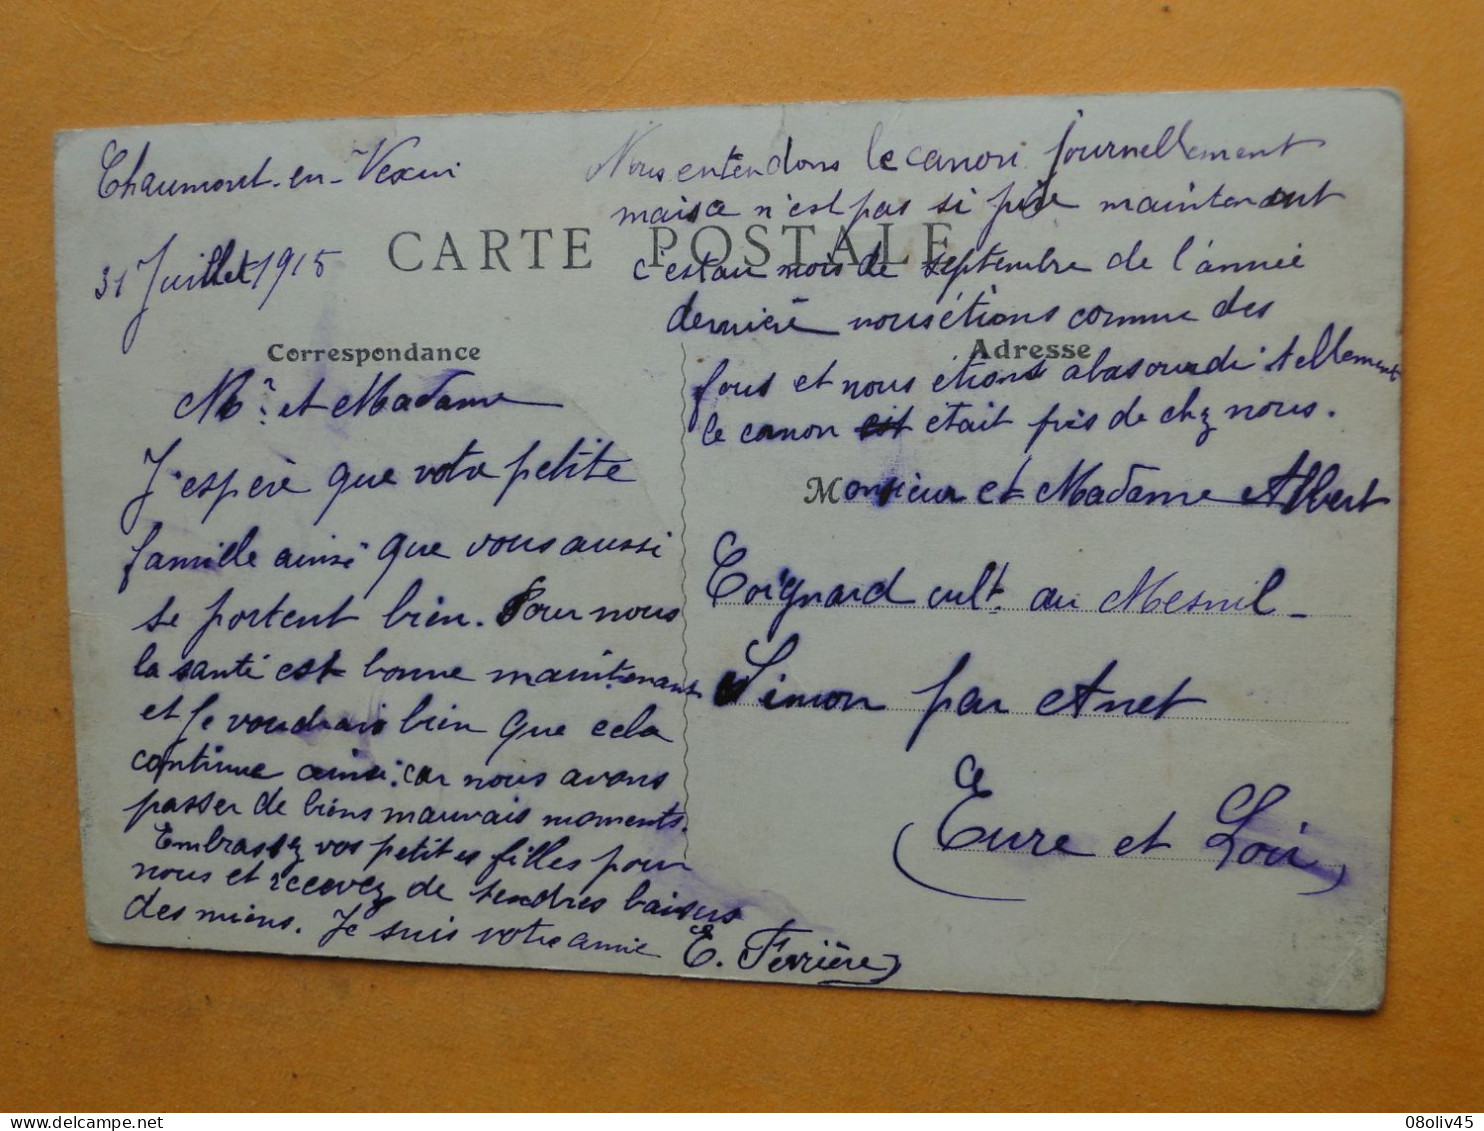 Chaumont-en-Vexin
31 Juillet 1915
CARTE POSTALE
Correspondance
Mr. et Madame
J'espère que votre petite
famille ainsi que vous aussi
se portent bien. Pour nous
la santé est bonne maintenant
et je voudrais bien que cela
continue ainsi. car nous avons
passer de biens mauvais moments.
Embrassez vos petites filles pour
nous et recevez de tendres baisers
des miens. Je suis votre amie E. Ferrière
Nous entendons le canon journellement
mais ce n'est pas si pire maintenant
c'est au mois de septembre de l'année
dernière nous étions comme des
Adresse
fous et nous étions abasourdi tellement
le canon est était près de chez nous.
Monsieur et Madame Albert
Coignard cult. au Mesnil-
Simon par Anet
(Eure et Loir)
delcampe.net
08oliv45